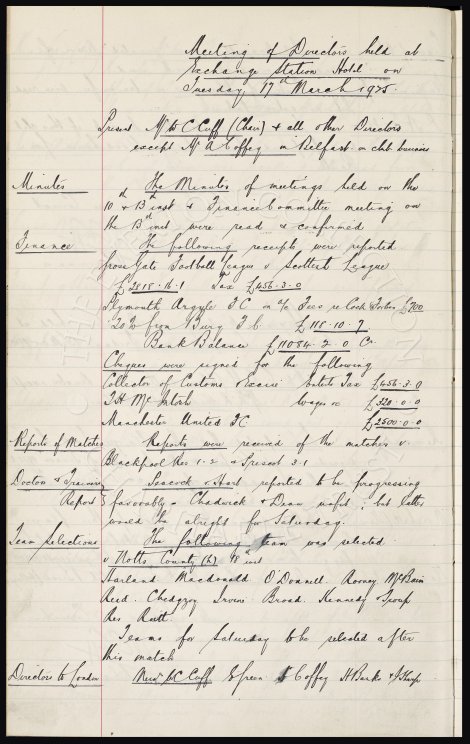 Meeting of Directors held at
Exchange Station Hotel on
Tuesday 17th March 1925.
Present Mr W C Cuff (Chair) & all other Directors
except Mr A Coffey in Belfast on club business
Minutes The Minutes of meetings held on the
10th & 13th inst & Finance Committee meeting on
the 13th inst were read & confirmed
Finance The following receipts were reported
Gross Gate Football League v Scottish League
£2818.16.1 Tax £456.3.0
Plymouth Argyle FC on a/c Fees re Cock Forbes £700
20% from Bury F C £118.10.7
Bank Balance £11084.2.0 Cr
Cheques were signed for the following
Collector of Customs & Excise Enterts Tax £456.3.0
T H McIntosh Wages &c £320.0.0
Manchester United FC £2500.0.0
Reports of Matches Reports were received of the matches v
Blackpool Res 1-2 & Prescot 3-1
Doctor & Trainers Peacock & Hart reported to be progressing
Report favorably - Chadwick & Dean unfit; but latter
would be alright for Saturday.
Team Selections The following team was selected
v Notts County (h) 18th inst
Harland Macdonald O'Donnell Rooney McBain
Reid Chedgzoy Irvine Broad Kennedy & Troup
Res Raitt.
Teams for Saturday to be selected after
this match
Directors to London Messrs W C Cuff E Green A Coffey H Banks & J Sharp